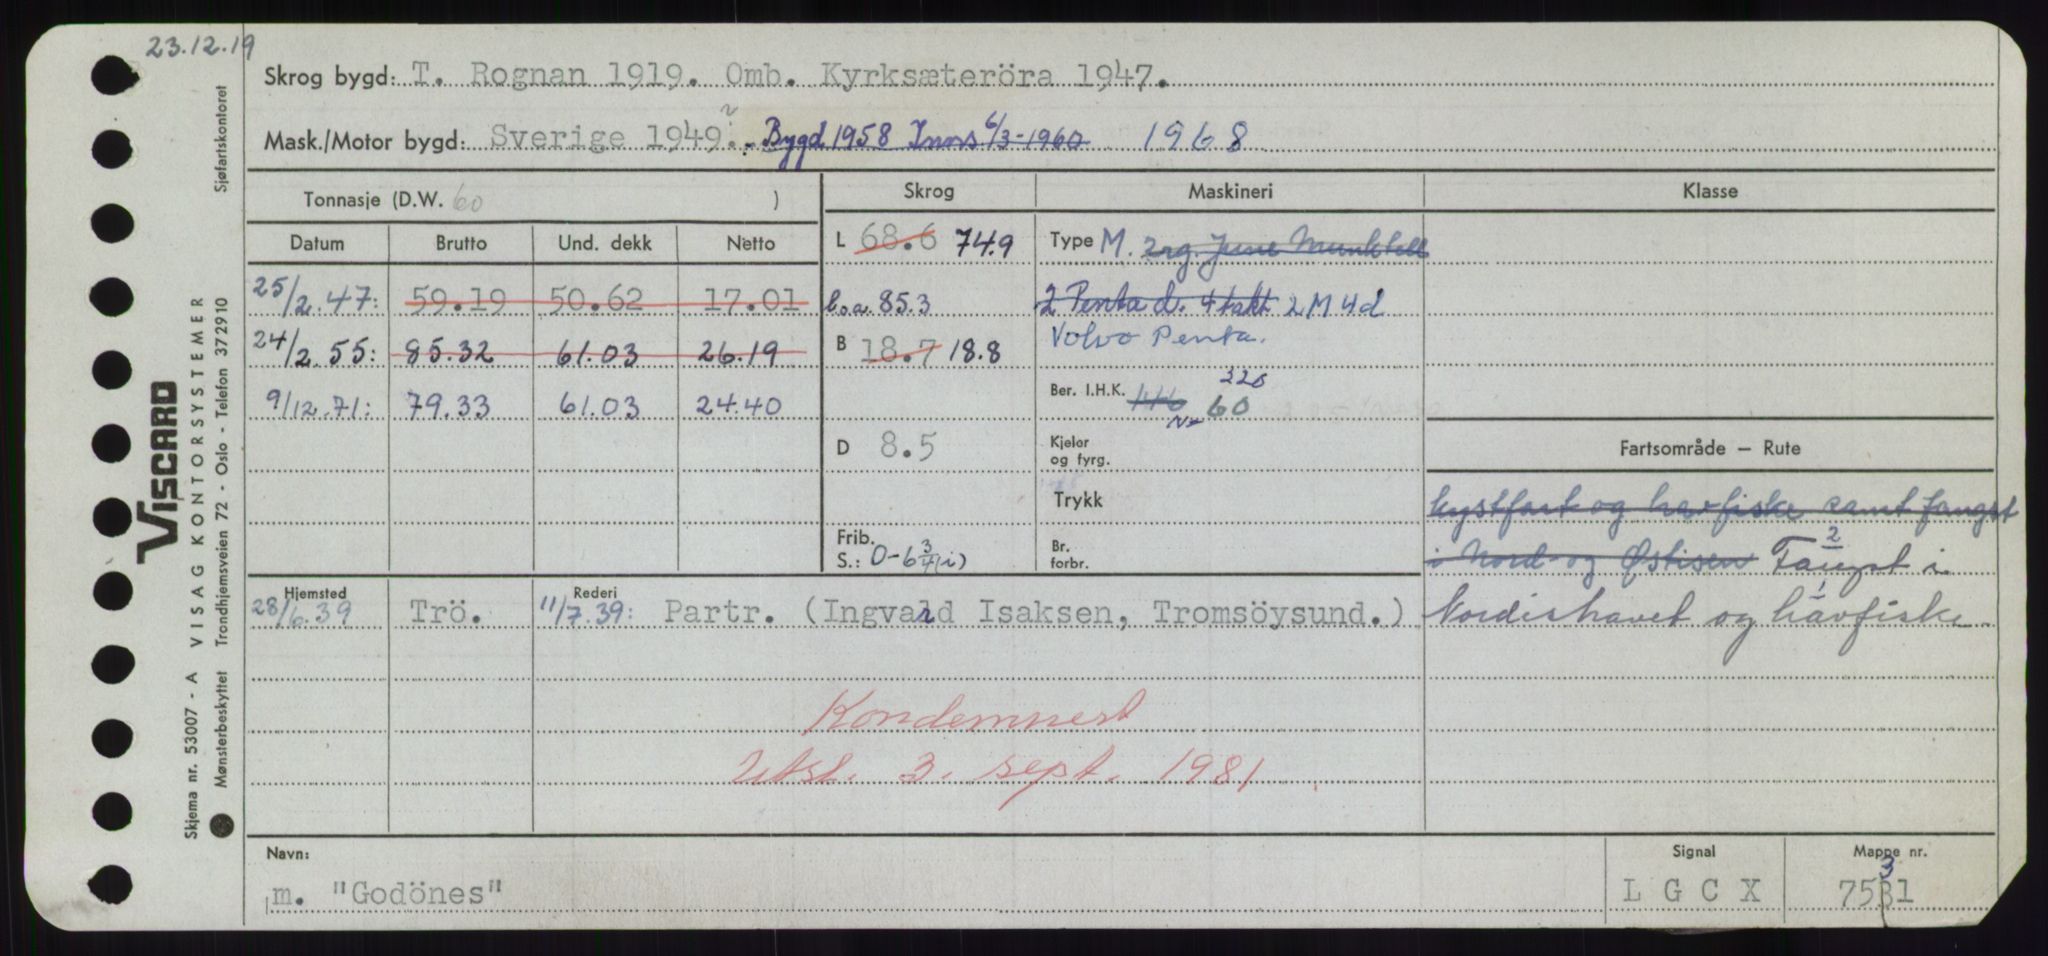 23.12.19
Skrog bygd: T. Rognan 1919. Omb. Kyrksæteröra 1947.
Mask./Motor bygd: Sverige 1949?. Bygd 1958 Inns 6/3-1960 1968
Tonnasje (D.W. 60 ) Skrog Maskineri Klasse
Datum Brutto Und. dekk Netto
L 68.6 74.9 Type M. 2rg. June Munktell
25/2.47: 59.19 50.62 17.01 l.o.a. 85.3 2 Penta d. 4 takt 2 M 4d
24/2.55: 85.32 61.03 26.19 B 18.7 18.8 Volvo Penta.
Ber. I.H.K. 220
9/12.71: 79.33 61.03 24.40 60
D 8.5 Kjeler og fyrg. Fartsområde – Rute
Trykk kystfart og havfiske samt fangst
Frib. S.: 0-6 3/4 (i) Br. forbr. i Nord og Østisen Fangst i
2
1
Hjemsted Rederi
28/6.39 Trö. 11/7.39: Partr. (Ingvard Isaksen, Tromsöysund.) Nordishavet og havfiske
Kondemnert
Utst. 3. sept. 1981
Navn: Signal Mappe nr.
m. "Godönes" L G C X 7531
3
Sjøfartskontoret
VISCARD
VISAG KONTORSYSTEMER
Trondhjemsveien 72 - Oslo - Telefon 372910
Skjema nr. 53007 - A
Mønsterbeskyttet